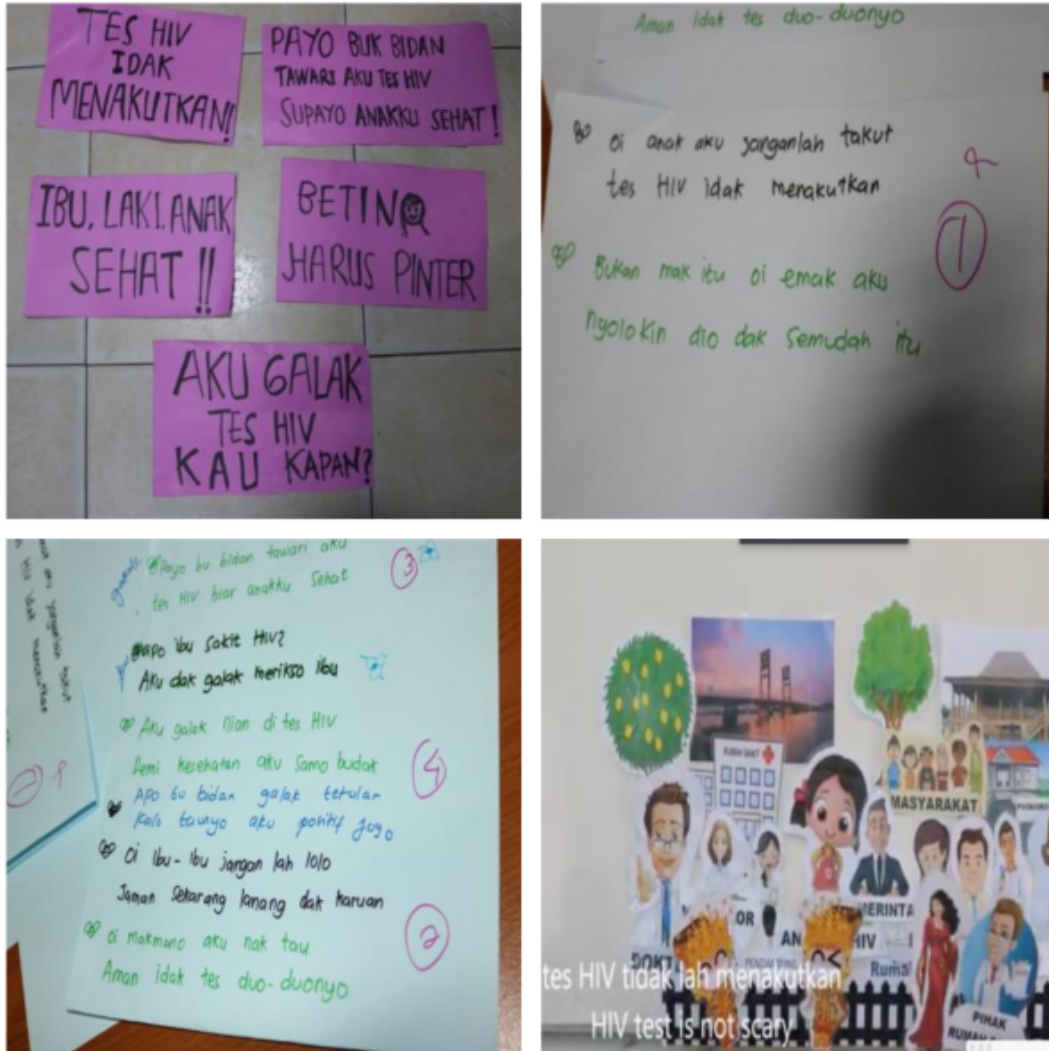 TES HIV
IDAK
MENAKUTKAN!
PAYO BUK BIDAN
TAWARI AKU TES HIV
SUPAYO ANAKKU SEHAT!
IBU, LAKI, ANAK
SEHAT !!
BETINO
HARUS PINTER
AKU GALAK
TES HIV
KAU KAPAN?
Aman idak tes duo-duonyo
Oi anak aku janganlah takut
tes HIV idak menakutkan
1
Bukan mak itu oi emak aku
Ngolokin dio dak semudah itu
Payo bu bidan tawari aku
tes HIV biar anakku sehat
3
Apo ibu sakit HIV?
Aku dak galak merikso ibu
Aku galak nian di tes HIV
Demi kesehatan aku samo budak
4
Apo bu bidan galak tetular
Kalo taunyo aku positif jugo
Oi Ibu-Ibu jangan lah lolo
Jaman sekarang lanang dak karuan
2
Oi makmano aku nak tau
Aman idak tes duo-duonyo
RUMAH SAKIT
MASYARAKAT
HIV
PENDAMPING
PIHAK
tes HIV tidak lah menakutkan
HIV test is not scary